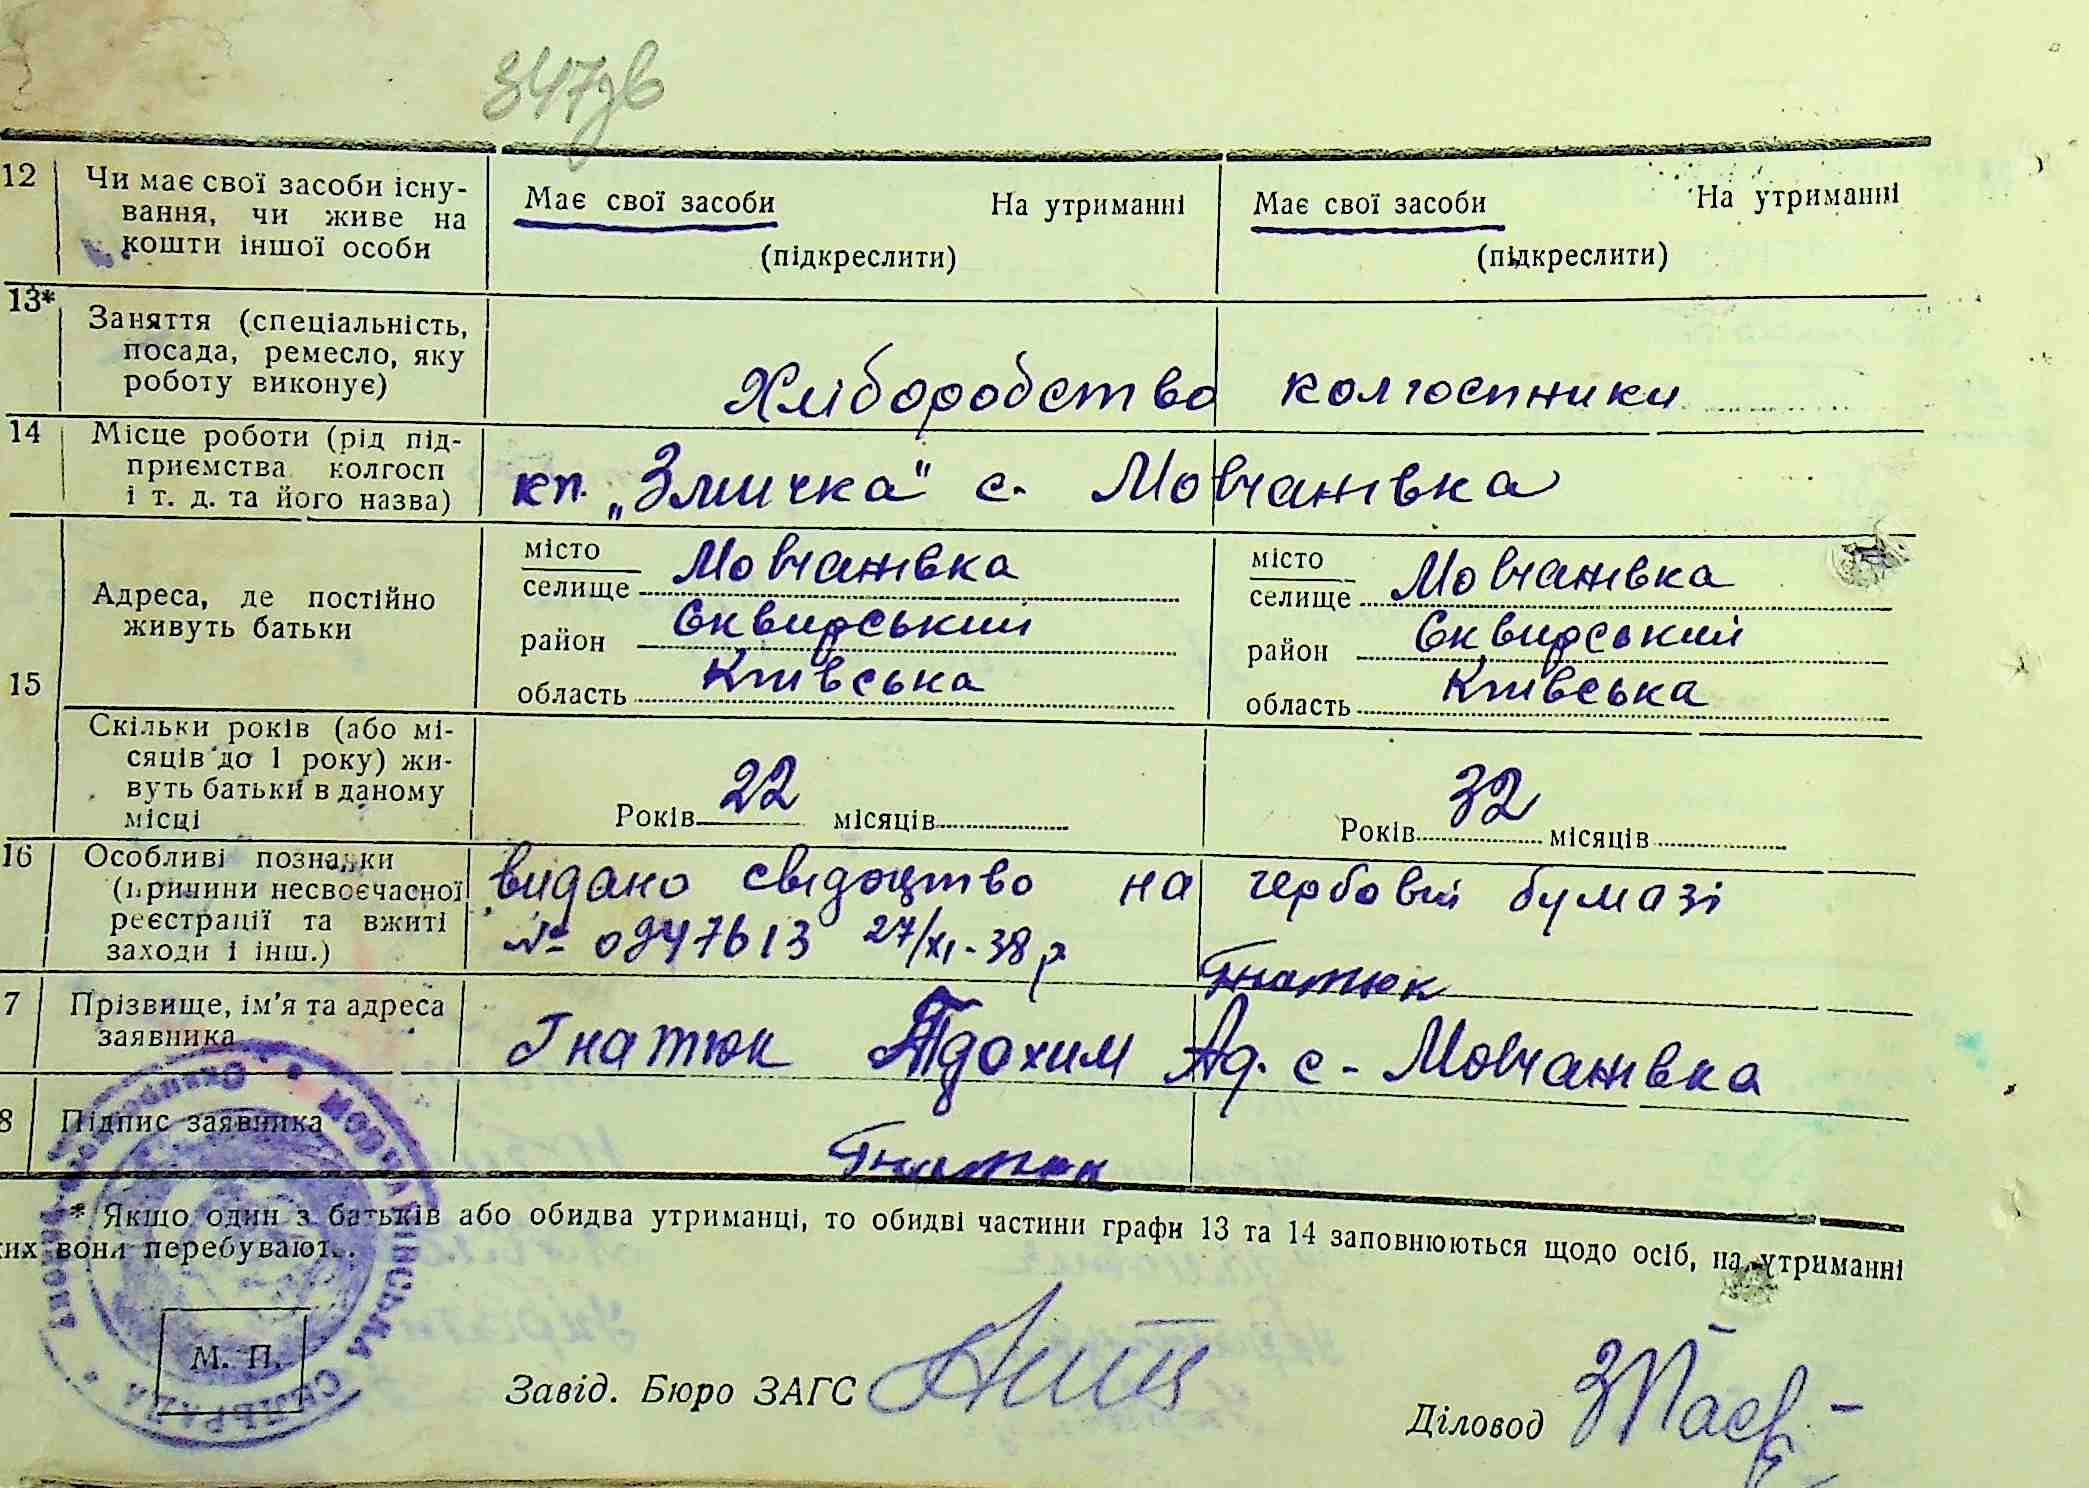 347зв
12 Чи має свої засоби існу-
вання, чи живе на
кошти іншої особи
Має свої засоби На утриманні
(підкреслити)
Має свої засоби На утриманні
(підкреслити)
13* Заняття (спеціальність,
посада, ремесло, яку
роботу виконує)
Хліборобство колгоспники
14 Місце роботи (рід під-
приємства колгосп
і т. д. та його назва)
кп. „Змичка" с. Мовчанівка
15 Адреса, де постійно
живуть батьки
місто
селище Мовчанівка
район Сквирський
область Київська
місто
селище Мовчанівка
район Сквирський
область Київська
Скільки років (або мі-
сяців до 1 року) жи-
вуть батьки в даному
місці
Років 22 місяців
Років 32 місяців
16 Особливі познаки
(причини несвоєчасної
реєстрації та вжиті
заходи і інш.)
видано свідоцтво на гербовій бумазі
№ 0947613 27/XI-38 р.
Гнатюк
7 Прізвище, ім'я та адреса
заявника
Гнатюк Ад. с - Мовчанівка
8 Підпис заявника
Гнатюк
* Якщо один з батьків або обидва утриманці, то обидві частини графи 13 та 14 заповнюються щодо осіб, на утриманні
ких вони перебувают..
МОВЧАНІВСЬКА СІЛЬРАДА
М. П.
Завід. Бюро ЗАГС
Діловод